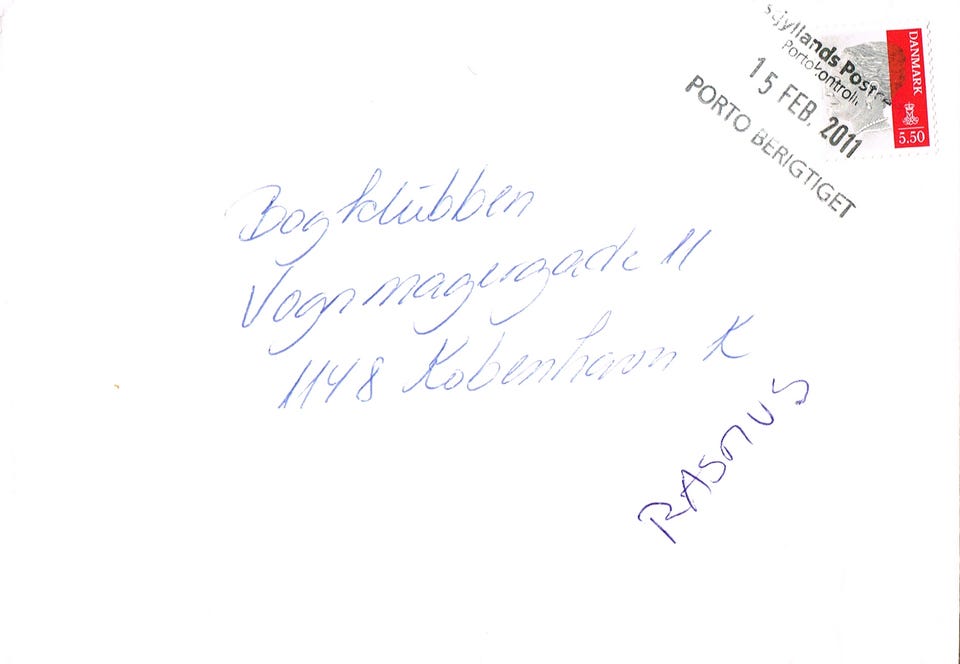 jyllands Post
Portokontroll
15 FEB. 2011
PORTO BERIGTIGET
DANMARK
5.50
Bogklubben
Vognmagergade 11
1148 København K
RASMUS